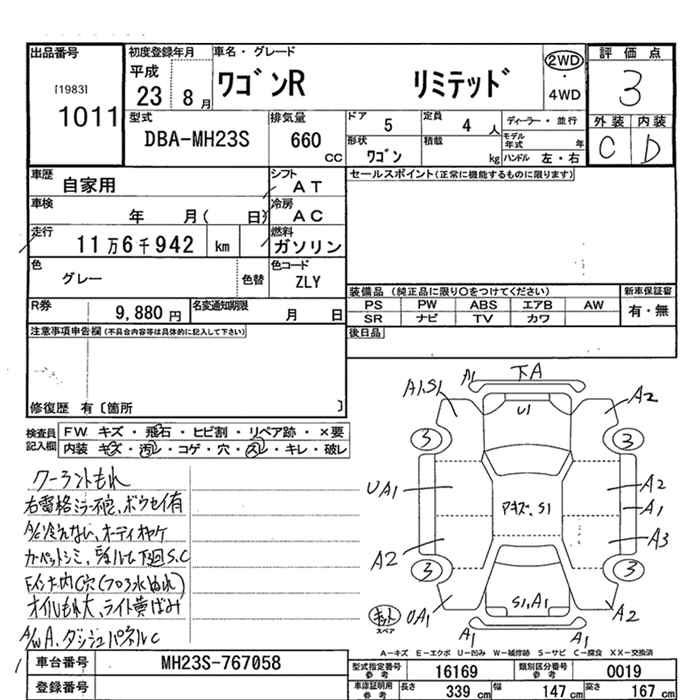 出品番号
[1983]
1011
初度登録年月
平成
23 8 月
車名・グレード
ワゴンR リミテッド
2WD
・
4WD
評価点
3
外装 内装
C D
型式
DBA-MH23S
排気量
660 CC
ドア 5
定員 4 人
形状 ワゴン
積載 kg
ディーラー・並行
モデル年式 年
ハンドル 左・右
車歴 自家用
シフト AT
車検 年 月( 日)
冷房 AC
走行 11万6千942 km
燃料 ガソリン
色 グレー 色替
色コード ZLY
R券 9,880 円
名変通知期限 月 日
セールスポイント(正常に機能するものに限ります)
装備品(純正品に限り○をつけてください)
PS PW ABS エアB AW
SR ナビ TV カワ
新車保証書
有・無
後日品
注意事項申告欄(不具合内容等は具体的に記入して下さい)
修復歴 有〔箇所 〕
検査員記入欄
FW キズ・飛石・ヒビ割・リペア跡・×要
内装 キズ・汚レ・コゲ・穴・スレ・キレ・破レ
クーラントもれ
A/C冷えない、オーディオヤケ
オイルもれ大、ライト黄ばみ
A/W A、ダッシュパネルC
A1 下A A1
A1,S1 U1 A2
3 3
UA1 A2
アキズ、S1 A1
A2 A3
3 3
UA1 S1,A1 A2
スペア
A1 A1
A―キズ E―エクボ U―凹み W―補修跡 S―サビ C―腐食 XX―交換済
車台番号 MH23S-767058
登録番号
型式指定番号 参考 16169
類別区分番号 参考 0019
車庫証明用 参考 長さ 339 cm 幅 147 cm 高さ 167 cm